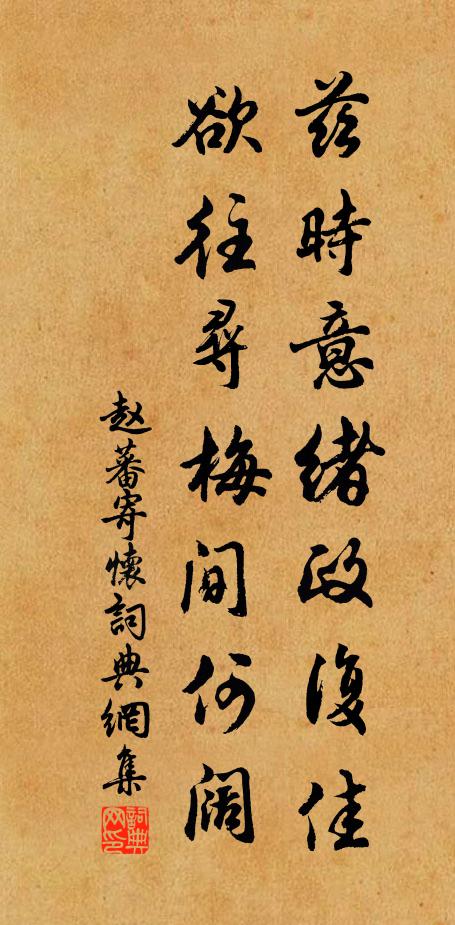 茲時意緒政復佳
欲往尋梅間何闊
赵蕃寄懷詞典網集
詞典网印